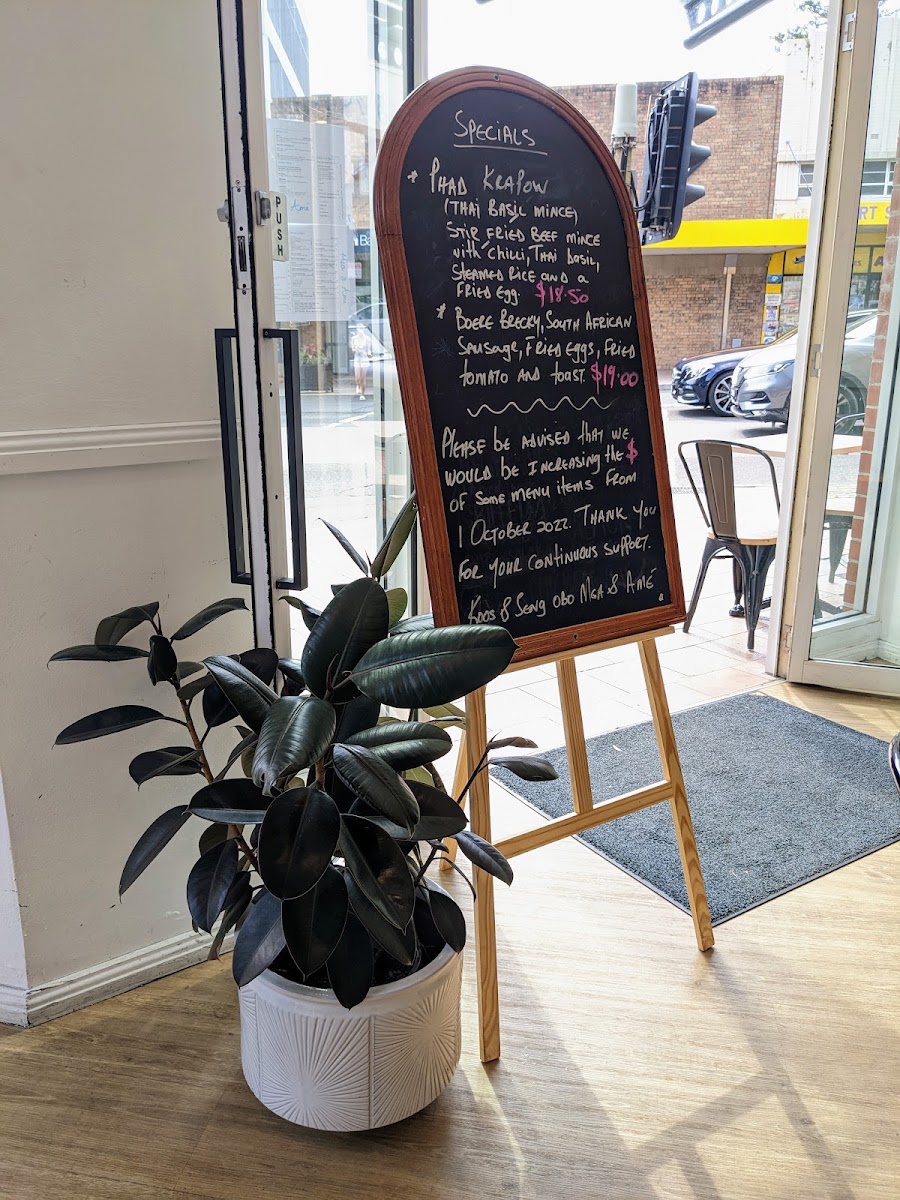 SPECIALS
* PHAD KRAPOW
(THAI BASIL MINCE)
STIR FRIED BEEF MINCE
with CHILLI, THAI basil,
STEAMED RICE AND a
FRIED Egg. $18.50
* BOERE BRECKY, SOUTH AFRICAN
SAUSAGE, FRIED EGGS, FRIED
tomato AND toast. $19.00
PLEASE be ADVISED that WE
WOULD be INCREASING the $
OF Some menu items FROM
1 OCTOBER 2022. THANK YOU
FOR YOUR CONTINUOUS SUPPORT.
KOOS & SENG OBO MGA & AMÉ
PUSH